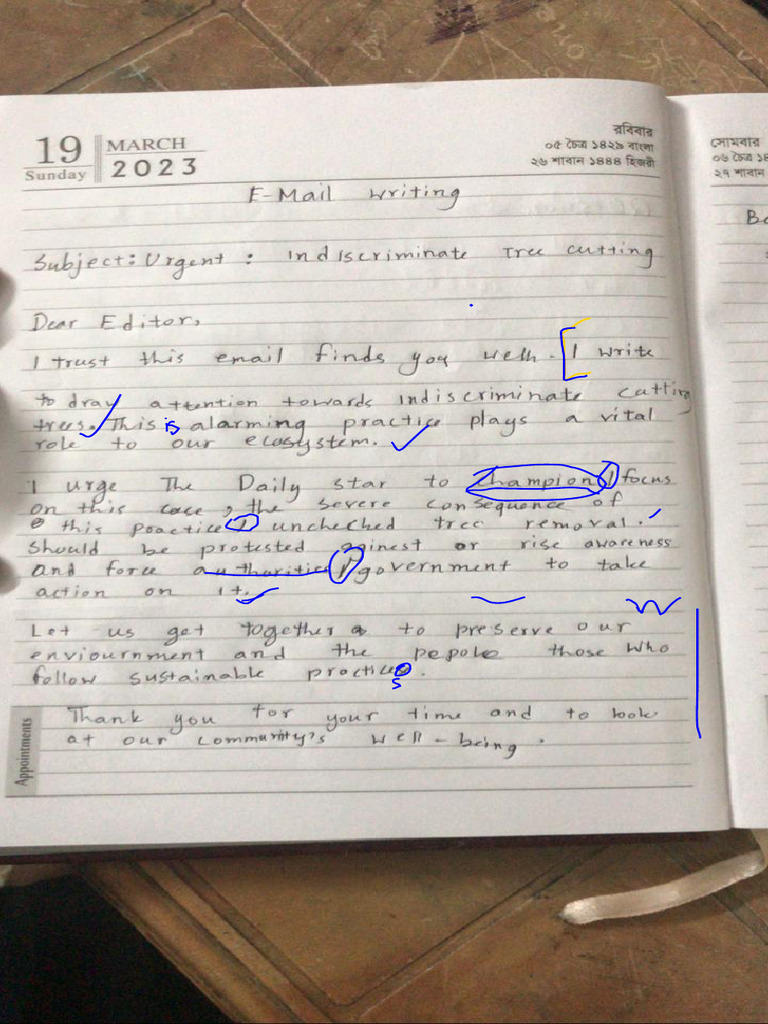 19
Sunday
MARCH
2023
রবিবার
০৫ চৈত্র ১৪২৯ বাংলা
২৬ শাবান ১৪৪৪ হিজরী
সোমবার
০৬ চৈত্র ১৪
২৭ শাবান
E-Mail writing
Subject: Urgent: Indiscriminate Tree cutting
Dear Editor,
I trust this email finds you well. [I write
to dray attention towards indiscriminate cutting
trees. This is alarming practice plays a vital
role to our ecosystem.
I urge The Daily star to champion / focus
on this case, the severe consequence of
this practice / unchecked tree removal.
should be protested aginest or rise awareness
and force authorities / government to take
action on it.
Let us get together to preserve our
enviournment and the pepole those who
follow sustainable practices.
Thank you for your time and to look
at our community's well-being.
Appointments